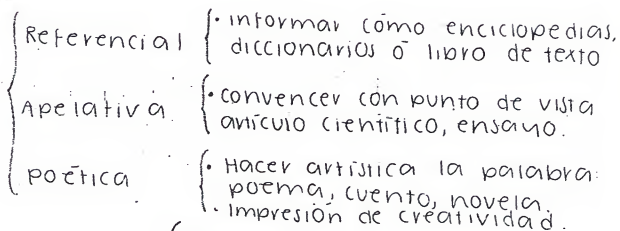 Referencial
• informar como enciclopedias,
diccionarios o libro de texto
Apelativa
• convencer con punto de vista
artículo científico, ensayo.
poética
• Hacer artística la palabra:
poema, cuento, novela.
• Impresión de creatividad.